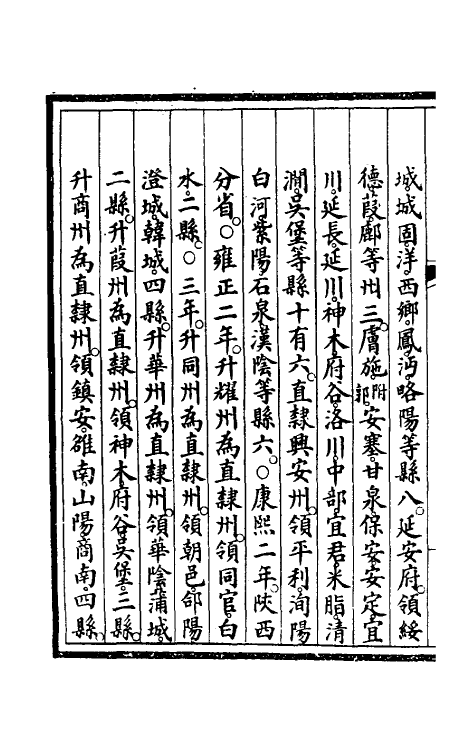 城城固洋西鄉鳳沔略陽等縣八延安府領綏
德葭鄜等州三膚施附郭安塞甘泉保安安定宜
川延長延川神木府谷洛川中部宜君米脂清
澗吳堡等縣十有六直隸興安州領平利洵陽
白河紫陽石泉漢陰等縣六○康熙二年陝西
分省○雍正二年升耀州為直隸州領同官白
水二縣○三年升同州為直隸州領朝邑郃陽
澄城韓城四縣升華州為直隸州領華陰蒲城
二縣升葭州為直隸州領神木府谷吳堡三縣
升商州為直隸州領鎮安雒南山陽商南四縣